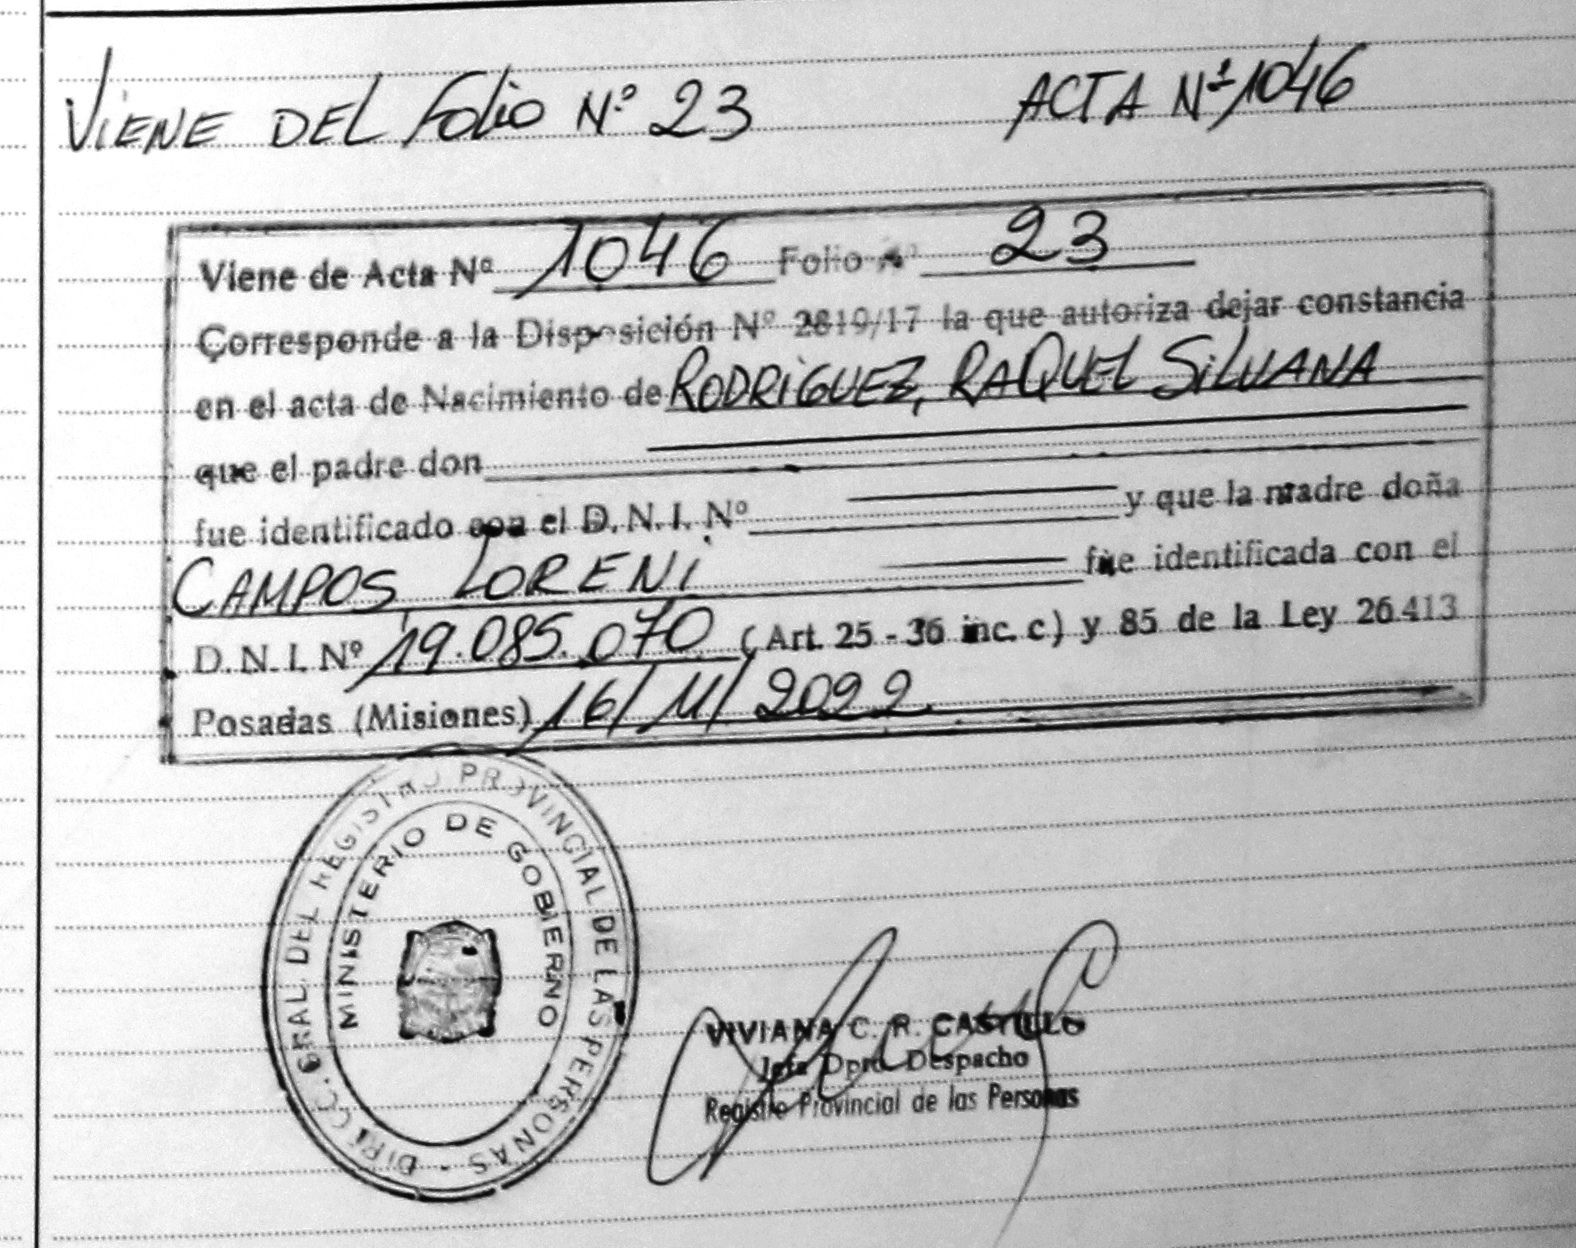 VIENE DEL Folio Nº 23
ACTA Nº 1046
Viene de Acta Nº 1046 Folio Nº 23
Corresponde a la Disposición Nº 2819/17 la que autoriza dejar constancia
en el acta de Nacimiento de RODRIGUEZ, RAQUEL SILVANA
que el padre don
fue identificado con el D.N.I. Nº y que la madre doña
CAMPOS LORENI fue identificada con el
D.N.I. Nº 19.085.070 (Art. 25 - 36 inc. c) y 85 de la Ley 26.413
Posadas (Misiones) 16/11/2022
DIRECC. GRAL. DEL REGISTRO PROVINCIAL DE LAS PERSONAS -
MINISTERIO DE GOBIERNO
VIVIANA C. R. CASTILLO
Jefa Dpto. Despacho
Registro Provincial de las Personas